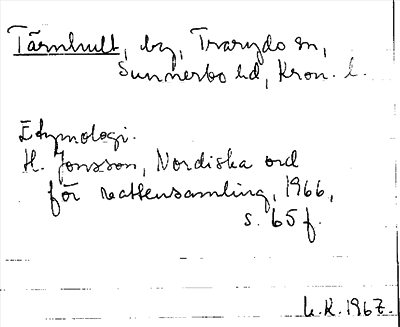 Tärnhult, by, Traryds sn,
Sunnerbo hd, Kron. l.
Etymologi.
H. Jonsson, Nordiska ord
för vattensamling, 1966,
s. 65 f.
L.R. 1967.